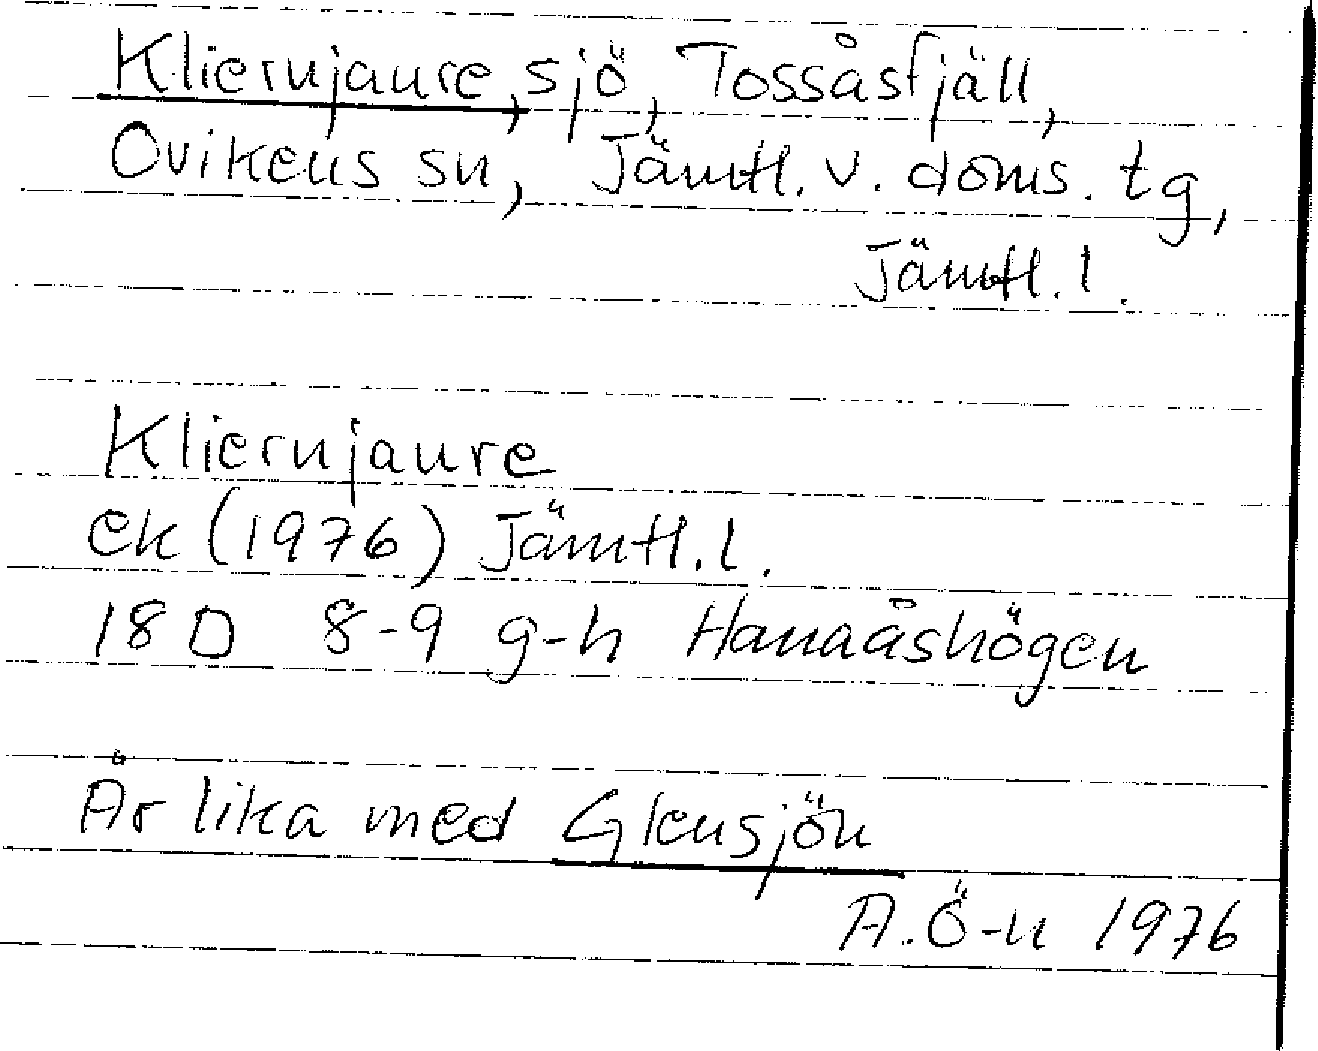 Kliernjaure, sjö, Tossåsfjäll,
Ovikens sn, Jämtl. v. doms. tg,
Jämtl. l.
Kliernjaure
ek (1976) Jämtl. l.
18 D 8-9 g-h Hanaåshögen
Är lika med Glensjön
A. Ö-n 1976